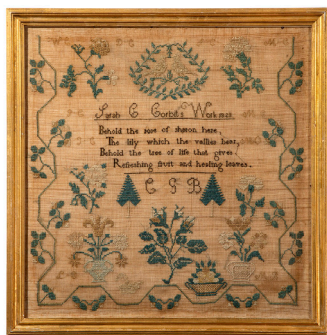 Sarah C Corbit's Work 1823
Behold the rose of sharon here,
The lily which the vallies bear,
Behold the tree of life that gives
Refreshing fruit and healing leaves.
C S B